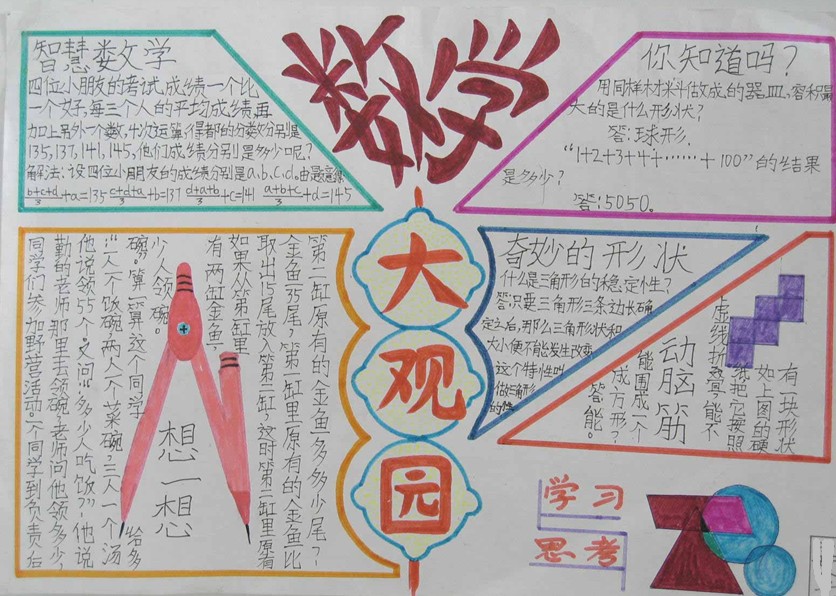 数学
大
观
园
智慧娄文学
四位小朋友的考试成绩一个比
一个好,每三个人的平均成绩再
加上另外一个数,
135,137,141,145,他们成绩分别是多少呢?
解法:设四位小朋友的成绩分别是a.b.c.d.由题意得
b+c+d/3+a=135 c+d+a/3+b=137 d+a+b/3+c=141 a+b+c/3+d=145
你知道吗?
用同样材料做成的器皿.容积最
大的是什么形状?
答:球形.
“1+2+3+4+……+100”的结果
是多少?
答:5050。
奇妙的形状
什么是三角形的稳定性?
答:只要三角形三条边长确
定之后,那么三角形状和
大小便不能发生改变
这个特性叫
做三角形
的
动脑筋
有一块形状
如上图的硬
纸把它按照
虚线折叠,能不
能围成一个
成方形?
答能。
想一想
同学们参加野营活动。一个同学到负责后
勤的老师那里去领碗,老师问他领多少,
他说领55个。又问“多少人吃饭?”他说
“一人一个饭碗,两人一个菜碗,三人一个汤
碗。”算一算这个同学给多
少人领碗。
有两缸金鱼,
如果从第一缸里
取出15尾放入第二缸,这时第二缸里原有
金鱼35尾,第一缸里原有的金鱼比
第二缸原有的金鱼多多少尾?
学习
思考